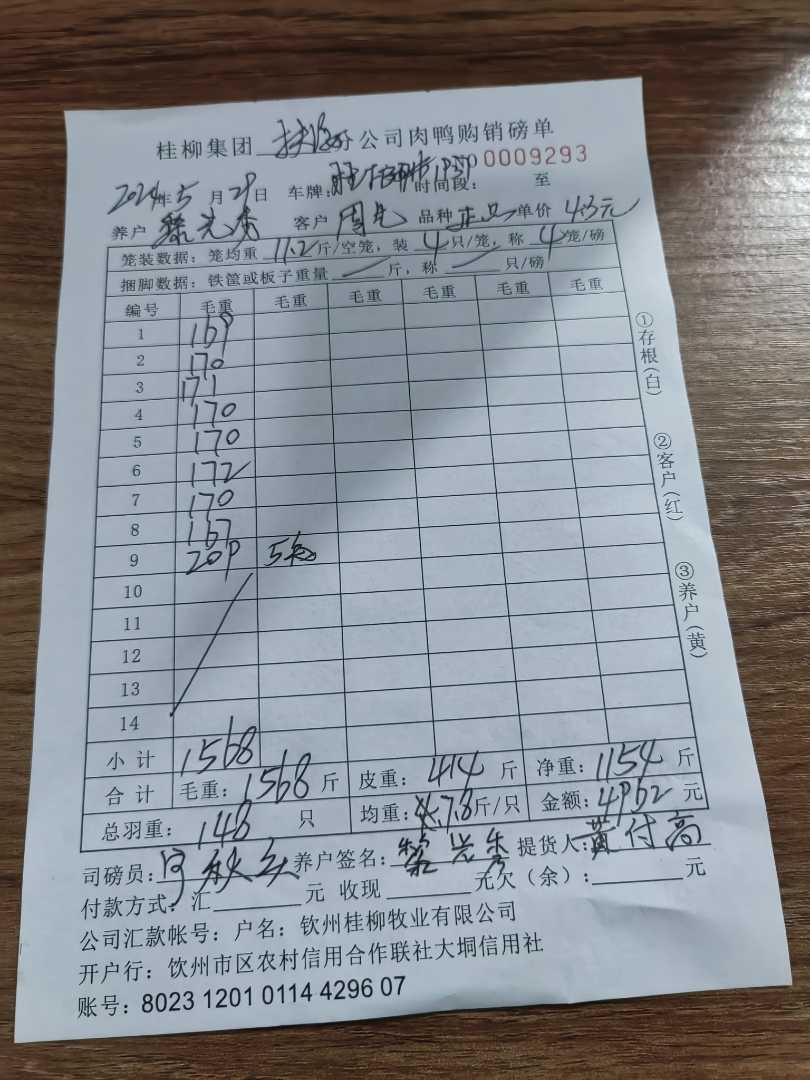 桂柳集团 扶绥分公司肉鸭购销磅单
0009293
2024年5月29日 车牌: 时间段: 至
养户 客户 品种 正品 单价 4.3元
笼装数据: 笼均重 11.2斤/空笼, 装 4只/笼, 称 4笼/磅
捆脚数据: 铁筐或板子重量 — 斤, 称 — 只/磅
编号 毛重 毛重 毛重 毛重 毛重 毛重
1 169
2 170
3 171
4 170
5 170
6 172
7 170
8 167
9 209 5笼
10
11
12
13
14
小计 1568
合计 毛重: 1568斤 皮重: 414斤 净重: 1154斤
总羽重: 148只 均重: 7.8斤/只 金额: 4962元
司磅员: 养户签名: 提货人: 黄付高
付款方式: 汇 元 收现 元欠(余): 元
公司汇款帐号: 户名: 钦州桂柳牧业有限公司
开户行: 钦州市区农村信用合作联社大垌信用社
账号: 8023 1201 0114 4296 07
①存根(白)
②客户(红)
③养户(黄)